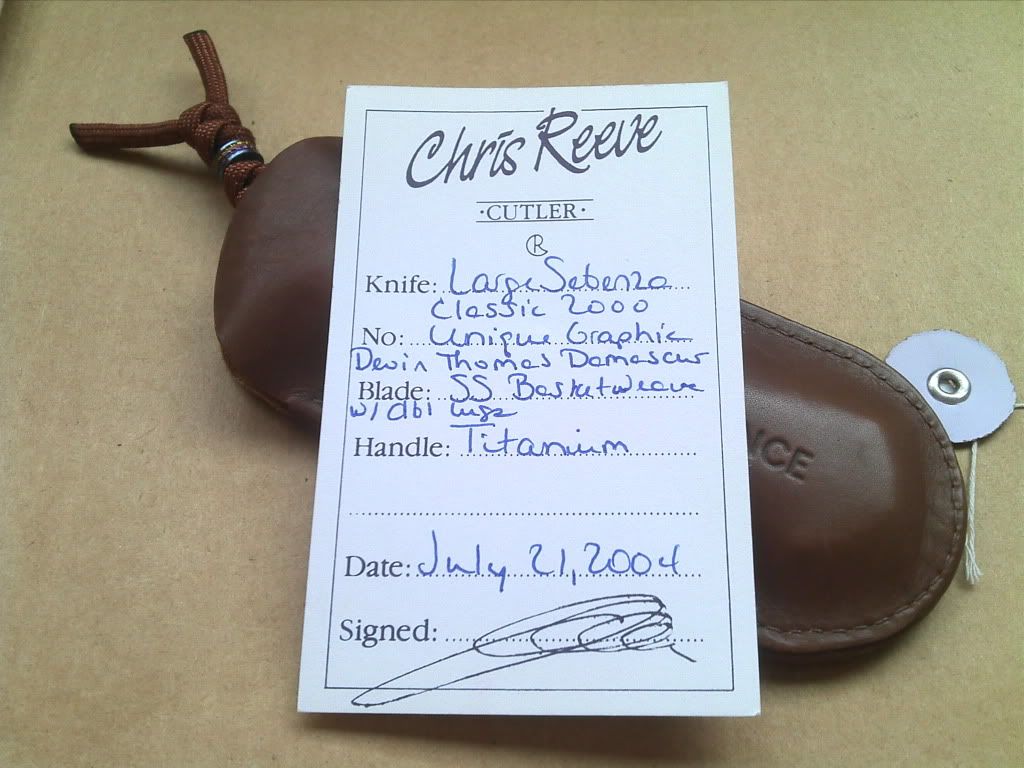 Chris Reeve
·CUTLER·
R
Knife: Large Sebenza
Classic 2000
No: Unique Graphic
Devin Thomas Damascus
Blade: SS Basketweave
w/ dbl lugs
Handle: Titanium
Date: July 21, 2004
Signed:
ICE